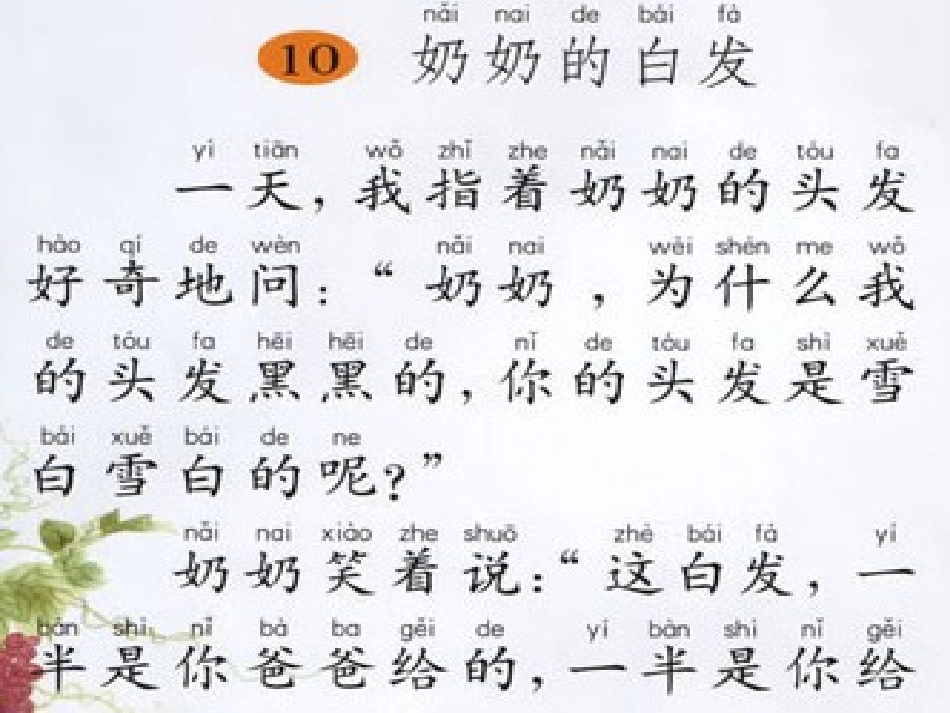 nǎi nai de bái fà
10 奶奶的白发
yì tiān wǒ zhǐ zhe nǎi nai de tóu fa
一天，我指着奶奶的头发
hào qí de wèn nǎi nai wèi shén me wǒ
好奇地问：“奶奶，为什么我
de tóu fa hēi hēi de nǐ de tóu fa shì xuě
的头发黑黑的，你的头发是雪
bái xuě bái de ne
白雪白的呢？”
nǎi nai xiào zhe shuō zhè bái fà yí
奶奶笑着说：“这白发，一
bàn shì nǐ bà ba gěi de yí bàn shì nǐ gěi
半是你爸爸给的，一半是你给